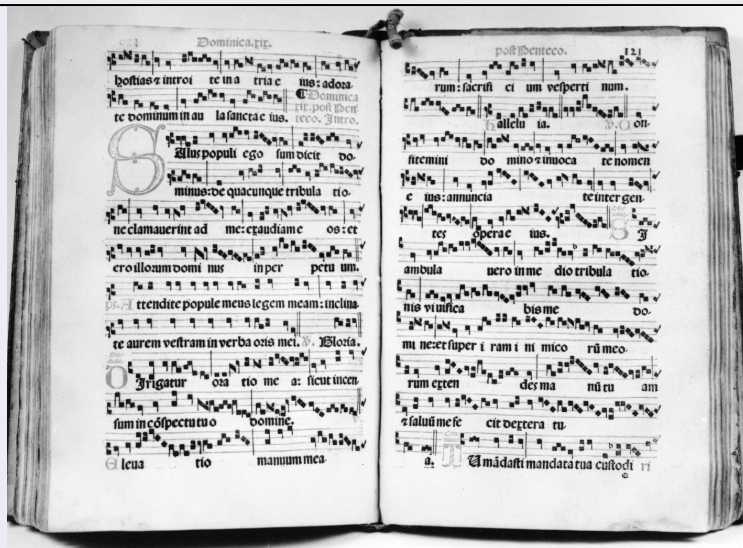 Dominica.xix.
hostias ⁊ introi te in a tria e ius: adora
te dominum in au la sancta e ius. ¶ Dominica
xix. post Pen
teco. Intro.
SAlus populi ego sum dicit do
minus: de quacunque tribula tio
ne clamauerint ad me: exaudiam e os: et
ero illorum domi nus in per petu um.
ps. Attendite popule meus legem meam: inclina
te aurem vestram in verba oris mei. v. Gloria.
DIrigatur ora tio me a: sicut incen
sum in cõspectu tu o domine.
Eleua tio manuum mea
post Penteco. 121
rum: sacrifi ci um vesperti num.
Allelu ia. v. Con
fitemini do mino ⁊ inuoca te nomen
e ius: annuncia te inter gen
tes opera e ius. SI
ambula uero in me dio tribula tio
nis viuifica bis me do
mi ne: et super i ram i ni mico rũ meo
rum exten des ma nũ tu am
⁊ saluũ me fe cit dextera tu
a. TU mãdasti mandata tua custodi ri